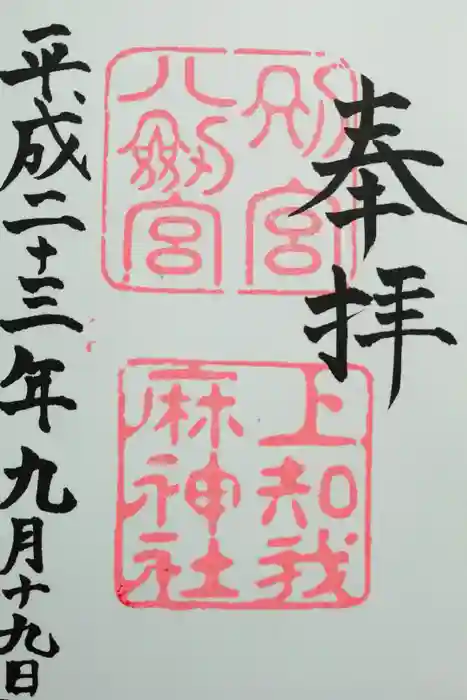 奉拝
別宮
八剱宮
上知我
麻神社
平成二十三年九月十九日